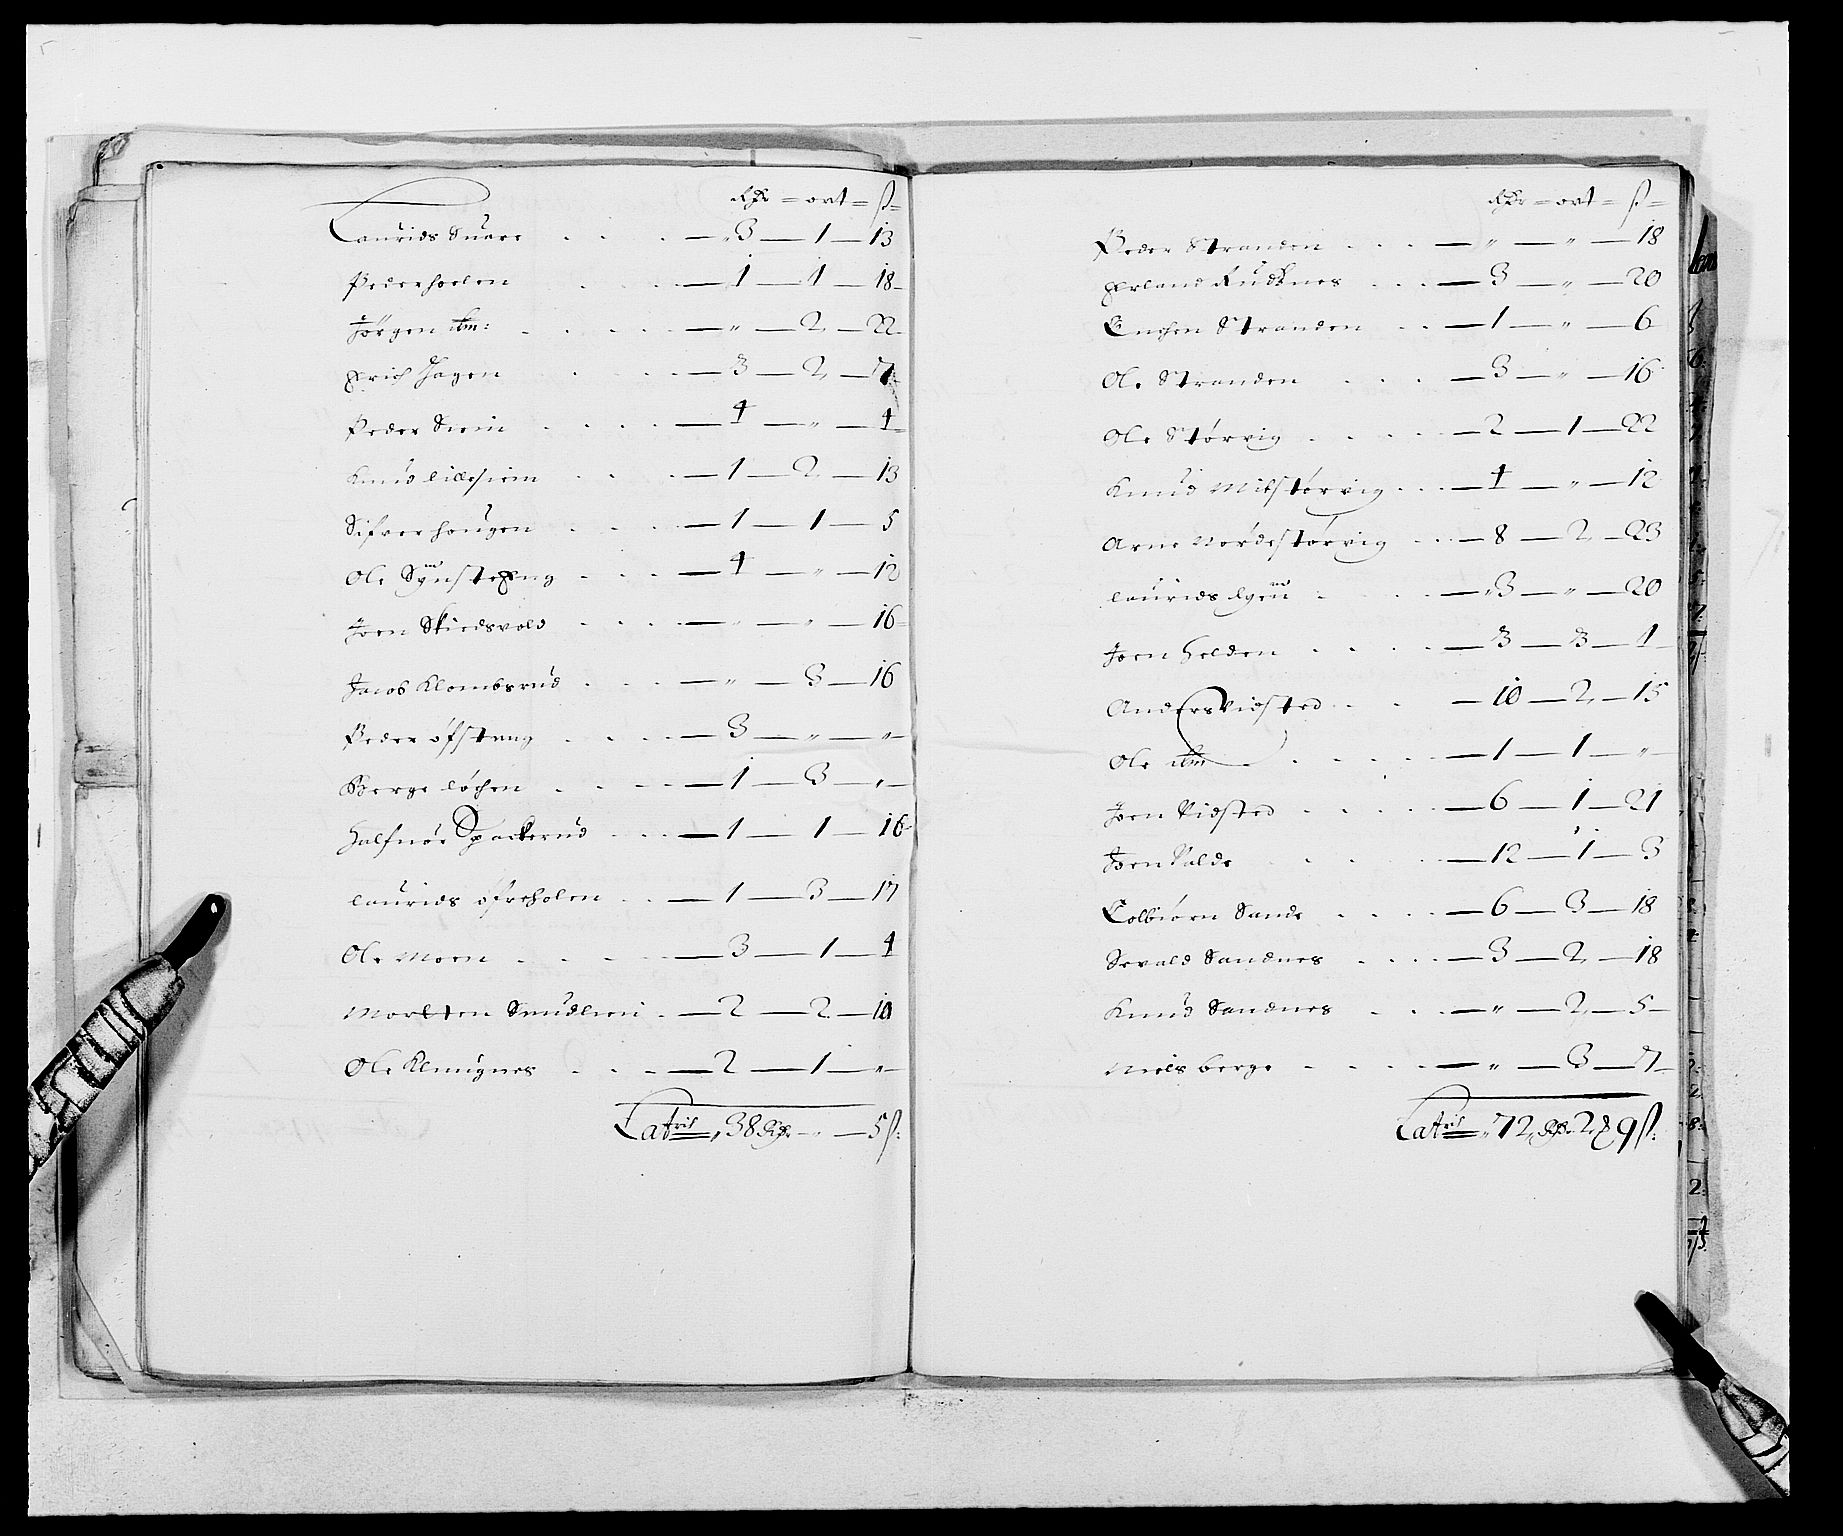 Rdr = ort = ß =
Laurids Suare . . . — „ 3 — 1 — 13
Peder hoelen . . . — 1 — 1 — 18
Jørgen ibm: . . . — „ — 2 — 22
Erich Hagen . . . — 3 — 2 — 7
Peder Siem . . . — 4 — „ — 4
Knud lillesiem . . . — 1 — 2 — 13
Sifver hougen . . . — 1 — 1 — 5
Ole Synsteeng . . . — 4 — „ — 12
Joen Skiedsvold . . . — „ — „ — 16
Jacob Klombsrud . . . — „ — 3 — 16
Peder øfsteng . . . — 3 — „ — „
Berge løchen . . . — 1 — 3 — „
Halfuor Spackerud . . . — 1 — 1 — 16
laurids øfreholen . . — 1 — 3 — 17
Ole Moen . . . — 3 — 1 — 4
Morten Snudleni . — 2 — 2 — 10
Ole Klingnes . . . — 2 — 1 — „
Latris „ 38 Rdr — „ — 5 ß:
Rdr = ort = ß =
Peder Stranden . . . — „ — „ — 18
Erland Rudsnes . . . — 3 — „ — 20
Engen Stranden . . — 1 — „ — 6
Ole Stranden . . . — 3 — „ — 16
Ole Størvig . . . — 2 — 1 — 22
Knud Midstørvig . . . — 4 — „ — 12
Arne Nordestørvig . . . — 8 — 2 — 23
laurids Igen . . . — „ 3 — „ — 20
Joen Helden . . . — 3 — 3 — 1
Anders Vidsted . . . — 10 — 2 — 15
Ole ibm . . . — 1 — 1 — „
Joen Vidsted . . . — 6 — 1 — 21
Joen Valde . . . — 12 — 1 — 3
Tolbiørn Sande . . . — 6 — 3 — 18
Sevald Sandnes . . . — 3 — 2 — 18
Knud Sandnes . . . — „ — 2 — 5
Niels berge . . . — „ — 3 — 7
Latris „ 72 Rdr 2 & 9 ß: